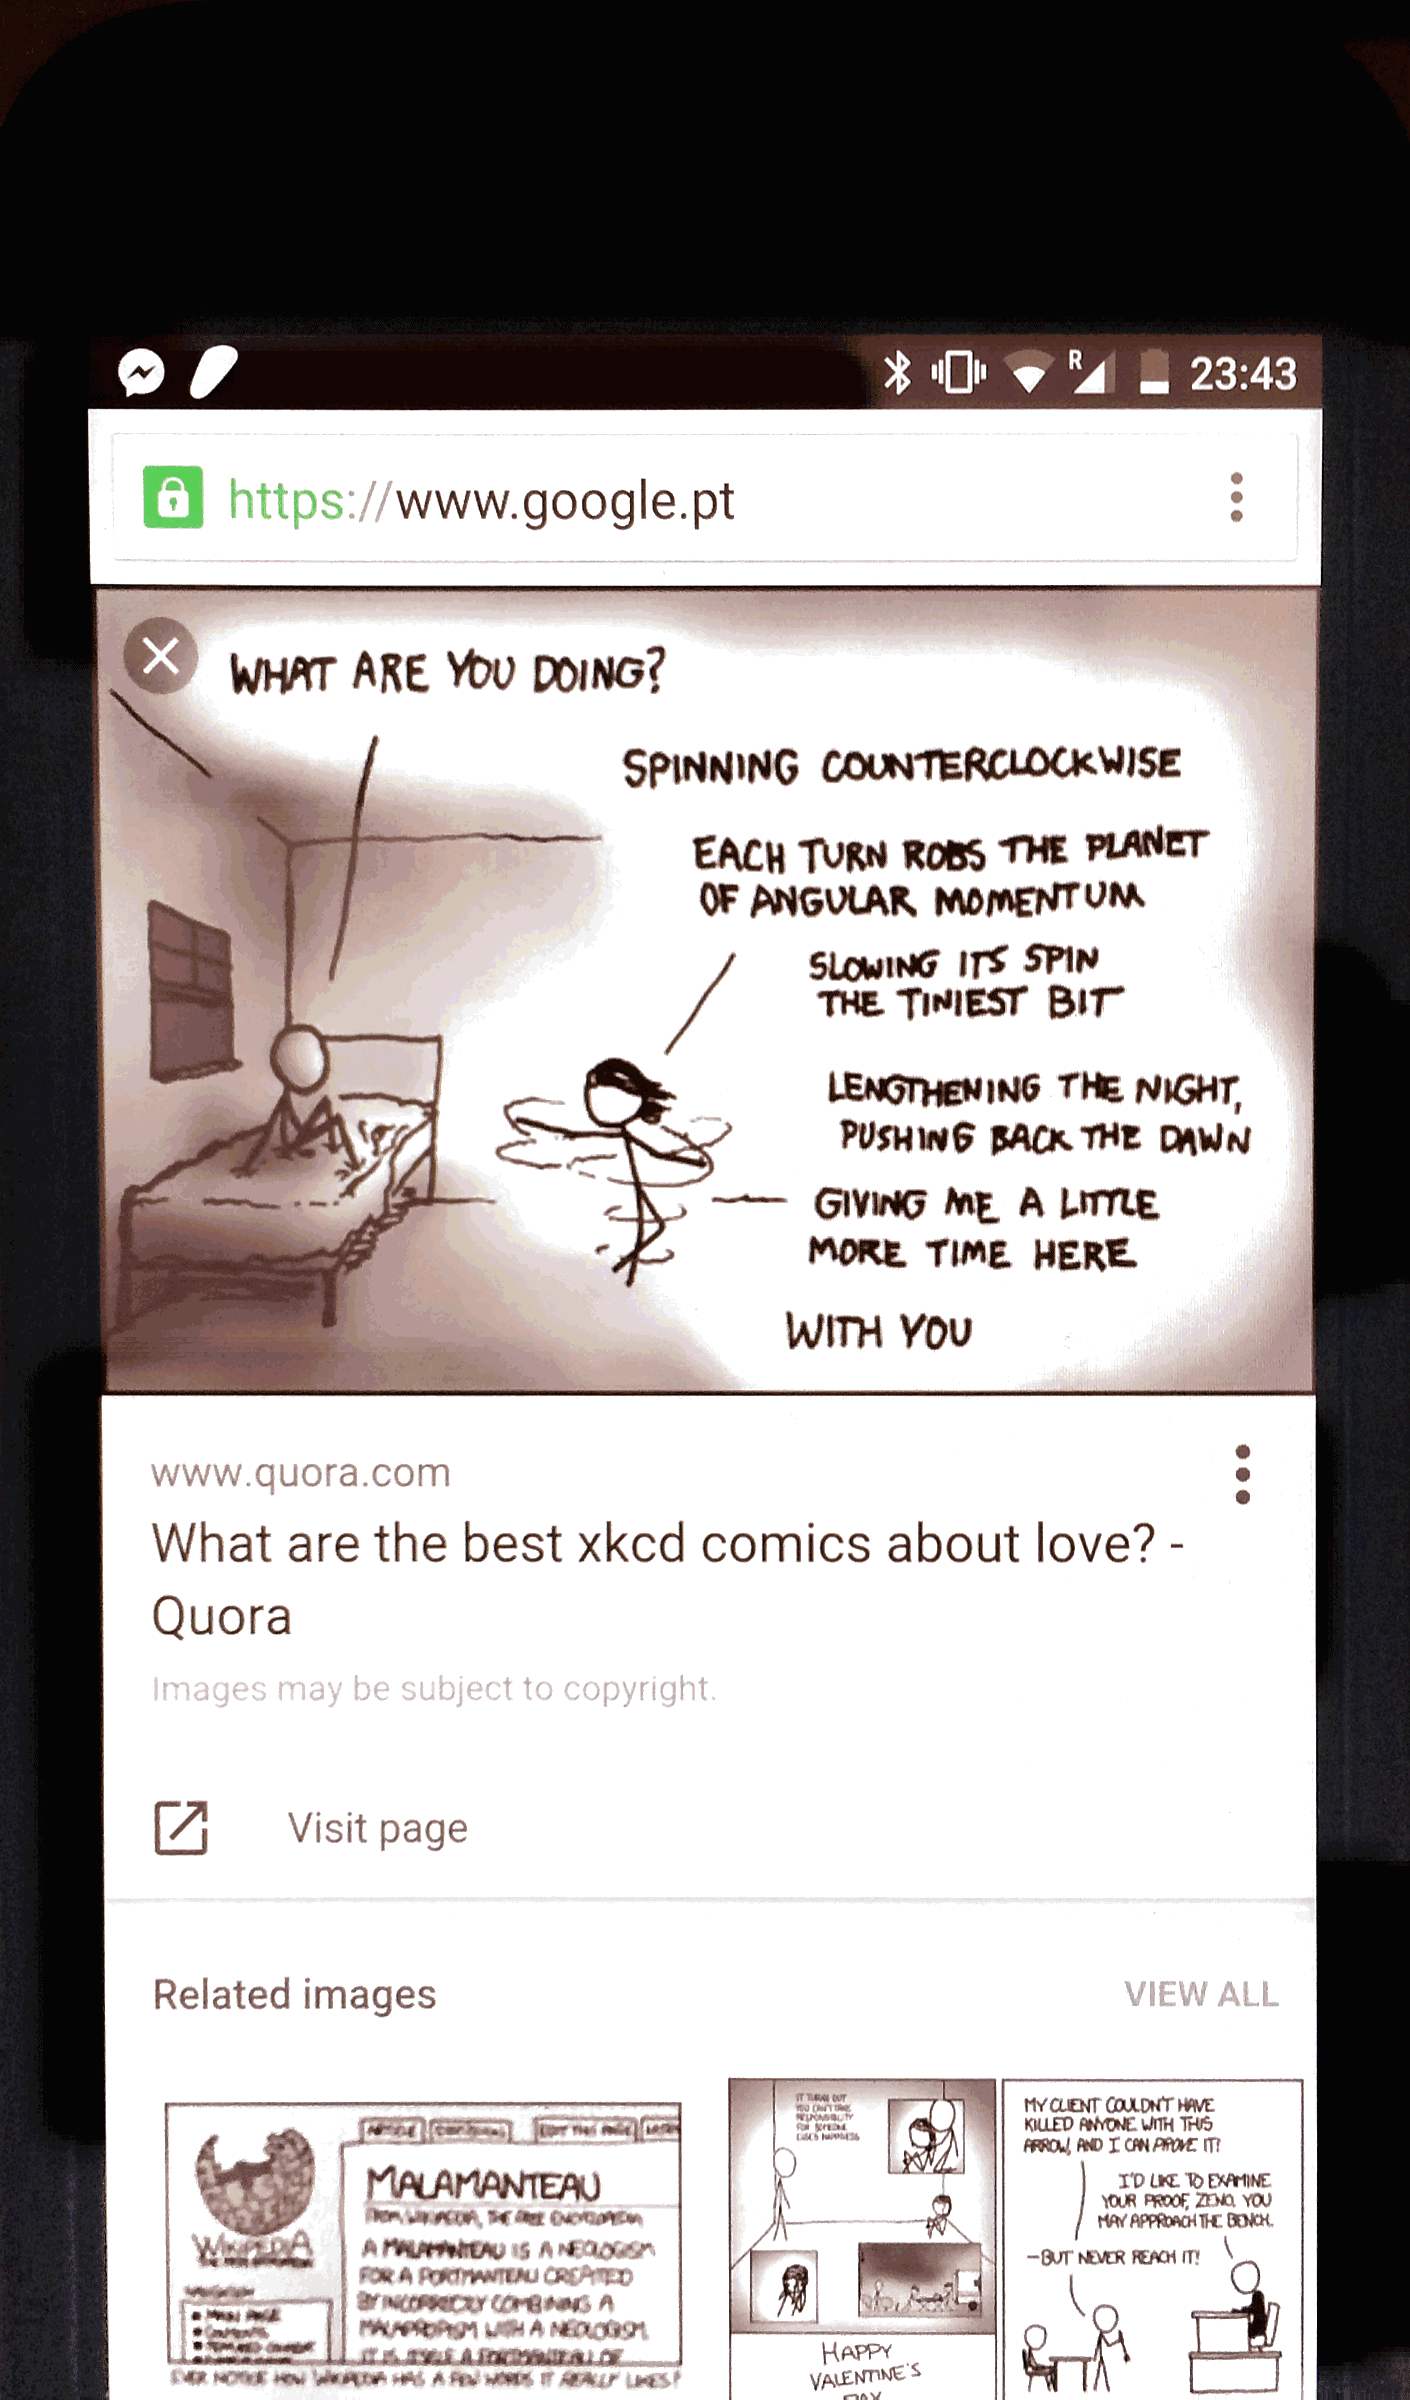 23:43
R
https://www.google.pt
WHAT ARE YOU DOING?
SPINNING COUNTERCLOCKWISE
EACH TURN ROBS THE PLANET
OF ANGULAR MOMENTUM
SLOWING ITS SPIN
THE TINIEST BIT
LENGTHENING THE NIGHT,
PUSHING BACK THE DAWN
GIVING ME A LITTLE
MORE TIME HERE
WITH YOU
www.quora.com
What are the best xkcd comics about love? -
Quora
Images may be subject to copyright.
Visit page
Related images
VIEW ALL
WIKIPEDIA
ARTICLE
EDIT THIS PAGE
MALAMANTEAU
FROM WIKIPEDIA, THE FREE ENCYCLOPEDIA
A MALAMANTEAU IS A NEOLOGISM
FOR A PORTMANTEAU CREATED
BY INCORRECTLY COMBINING A
MALAPROPISM WITH A NEOLOGISM.
IT IS ITSELF A PORTMANTEAU OF
MAIN PAGE
CONTENTS
EVER NOTICE HOW WIKIPEDIA HAS A FEW WORDS IT REALLY LIKES?
IT TURNS OUT
YOU CAN'T TAKE
RESPONSIBILITY
FOR SOMEONE
ELSE'S HAPPINESS
HAPPY
VALENTINE'S
DAY
MY CLIENT COULDN'T HAVE
KILLED ANYONE WITH THIS
ARROW, AND I CAN PROVE IT!
I'D LIKE TO EXAMINE
YOUR PROOF, ZENO. YOU
MAY APPROACH THE BENCH.
—BUT NEVER REACH IT!